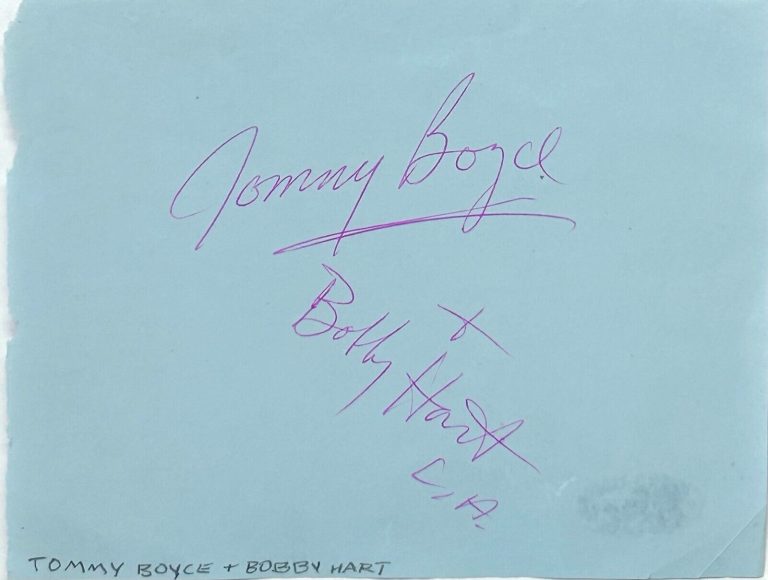 Tommy Boyce
+
Bobby Hart
L.A.
TOMMY BOYCE + BOBBY HART